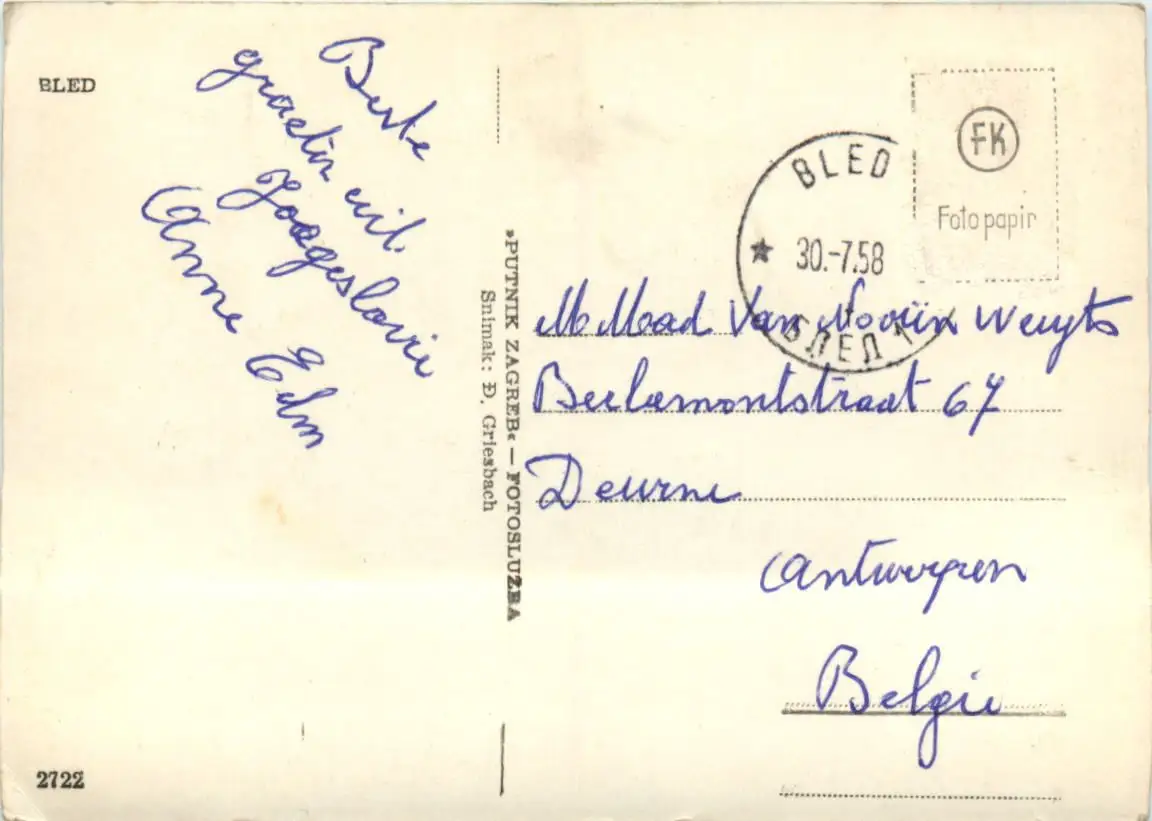 BLED
Beste
graeten uit
Joegeslavie
Anne Edm
2722
»PUTNIK ZAGREB« — FOTOSLUŽBA
Snimak: Đ. Griesbach
FK
Foto papir
BLED
30.-7.58
БЛЕД 1
M Mad Van Weuyts
67
Deurne
Antwerpen
Belgie